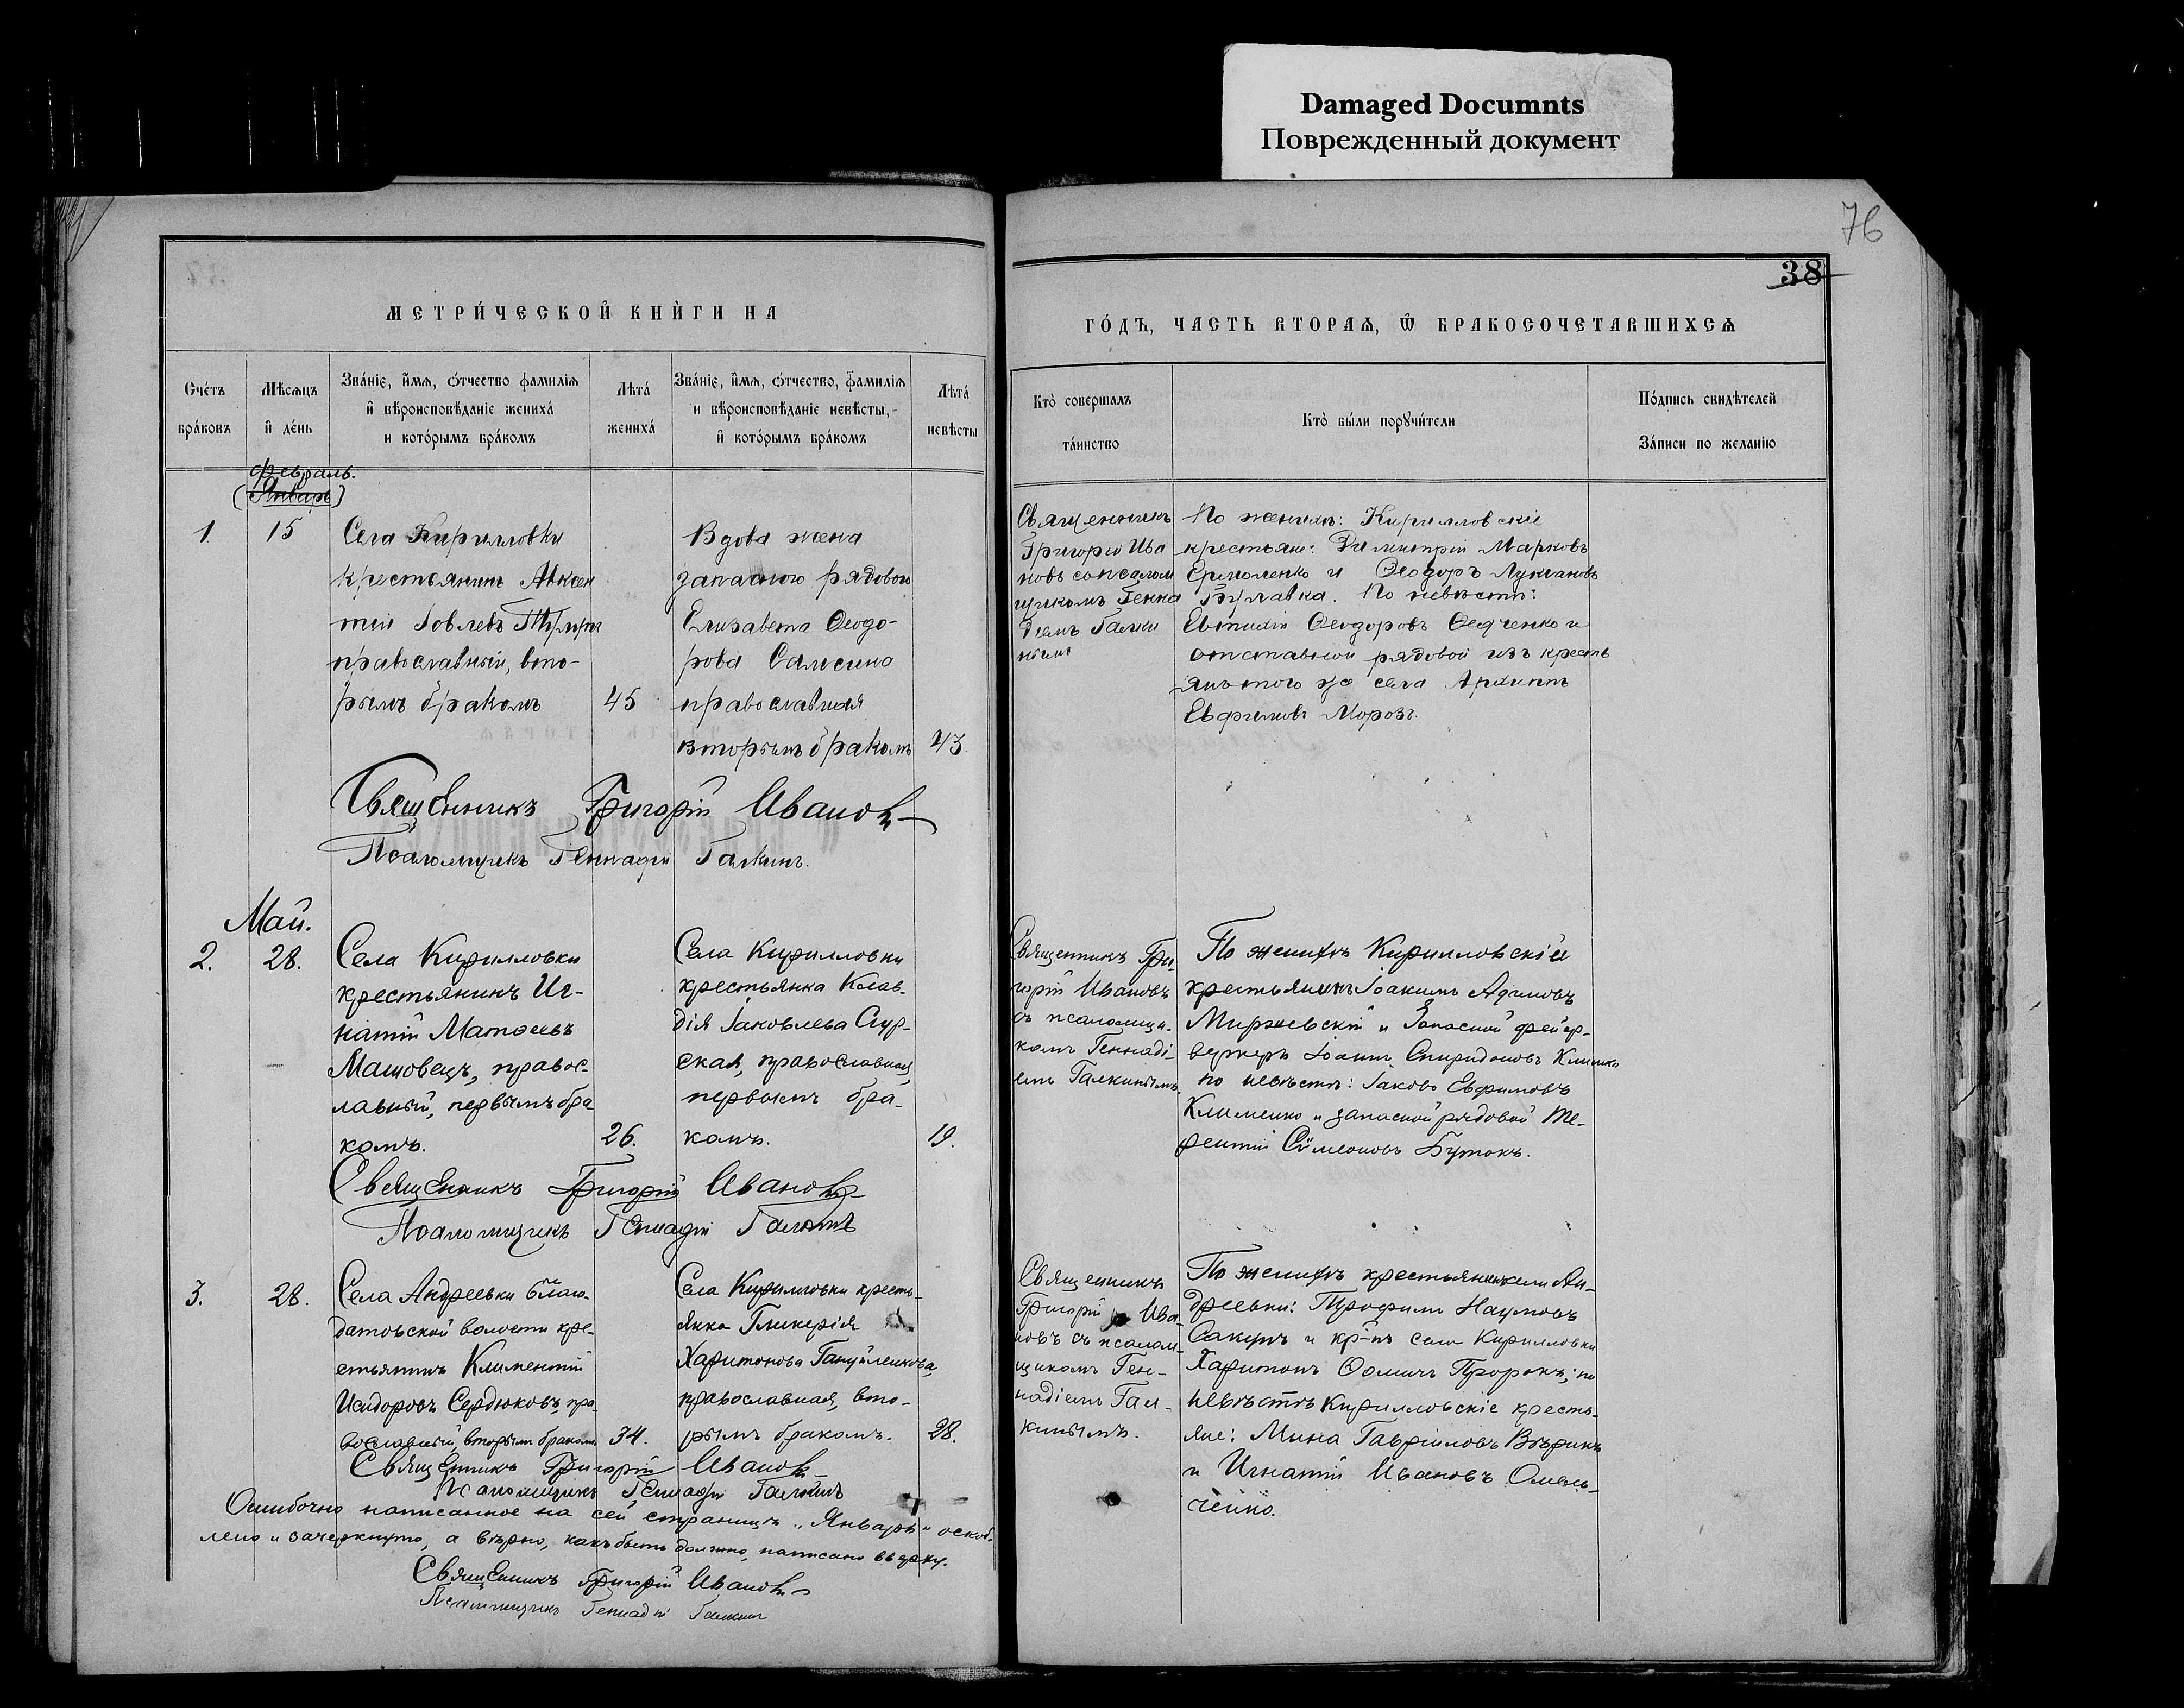 Damaged Documnts
Поврежденный документ
76
38
МЕТРИ́ЧЕСКОЙ КНИ́ГИ НА
ГО́ДЪ, ЧАСТЬ ВТОРАѦ, Ѿ БРАКОСОЧЕТАВШИХСѦ
Счéтъ
брáковъ
Мѣсѧцъ
и́ дéнь
Звáнїе, и́мѧ, ѻ́тчество фамилїѧ
и́ вѣроисповѣданїе женихá
и котóрымъ брáкомъ
Лѣтá
женихá
Звáнїе, и́мѧ, ѻ́тчество, фамилїѧ
и вѣроисповѣданїе невѣсты,
и́ котóрымъ брáкомъ
Лѣтá
невѣсты
Ктò совершалъ
тáинство
Ктò бы́ли порꙋчи́тели
Пóдпись свидѣтелей
Зáписи по желанїю
Февраль.
(Январь)
1.
15
Села Кирилловки
крестьянинъ Авксен
тій Іовлевъ
православный, вто-
рымъ бракомъ
45
Вдова жена
запасного рядового
Елизавета Ѳеодо-
рова
православная
вторымъ бракомъ
43.
Священникъ
Григорій Ива
новъ съ псалом
щикомъ Генна
діемъ Галки
нымъ
По женихѣ: Кирилловскіе
крестьяне: Димитрій Марковъ
Ермоленко и Ѳеодоръ Лукіановъ
Булавка. По невѣстѣ:
Евтихій Ѳеодоровъ Ѳедченко и
отставной рядовой изъ кресть
янъ того же села Архиппъ
Евфимовъ Морозъ.
Священникъ Григорій Ивановъ
Псаломщикъ Геннадій Галкинъ.
Май.
2.
28.
Села Кирилловки
крестьянинъ Иг-
натій Матѳеевъ
Машовецъ, правос-
лавный, первымъ бра
комъ.
26.
Села Кирилловки
крестьянка Клав-
дія Іаковлева Сур-
ская, православная,
первымъ бра-
комъ.
19.
Священникъ Гри-
горій Ивановъ
съ псаломщи-
комъ Геннаді-
емъ Галкинымъ
По женихѣ Кирилловскіе
крестьянинъ Іоакимъ Адамовъ
Миржевскій и Запасной фейер-
веркеръ Іоаннъ Спиридоновъ Клименко
по невѣстѣ: Іаковъ Евфимовъ
Клименко и запасной рядовой Те-
рентій Сѵмеоновъ Бутокъ.
Священникъ Григорій Ивановъ
Псаломщикъ Геннадій Галкинъ
3.
28.
Села Андреевки Благо-
датовской волости кре-
стьянинъ Климентій
Исидоровъ Сердюковъ, пра-
вославный, вторымъ бракомъ
34.
Села Кирилловки кресть-
янка Гликерія
Харитонова Гануйленкова,
православная, вто-
рымъ бракомъ.
28.
Священникъ
Григорій Ива-
новъ съ псалом-
щикомъ Ген-
надіемъ Гал-
кинымъ.
По женихѣ крестьянинъ села Ан-
дреевки: Трофимъ Наумовъ
Сакунъ и кр-нъ села Кирилловки
Харитонъ Ѳоминъ Пророкъ; по
невѣстѣ Кирилловскіе кресть-
яне: Мина Гавріиловъ Вѣрикъ
и Игнатій Ивановъ Омель-
ченко.
Священникъ Григорій Ивановъ
Псаломщикъ Геннадій Галкинъ
Ошибочно написанное на сей страницѣ „Январь" оскоб-
лено и зачеркнуто, а вѣрно, какъ быть должно, написано вверху.
Священникъ Григорій Ивановъ
Псаломщикъ Геннадій Галкинъ